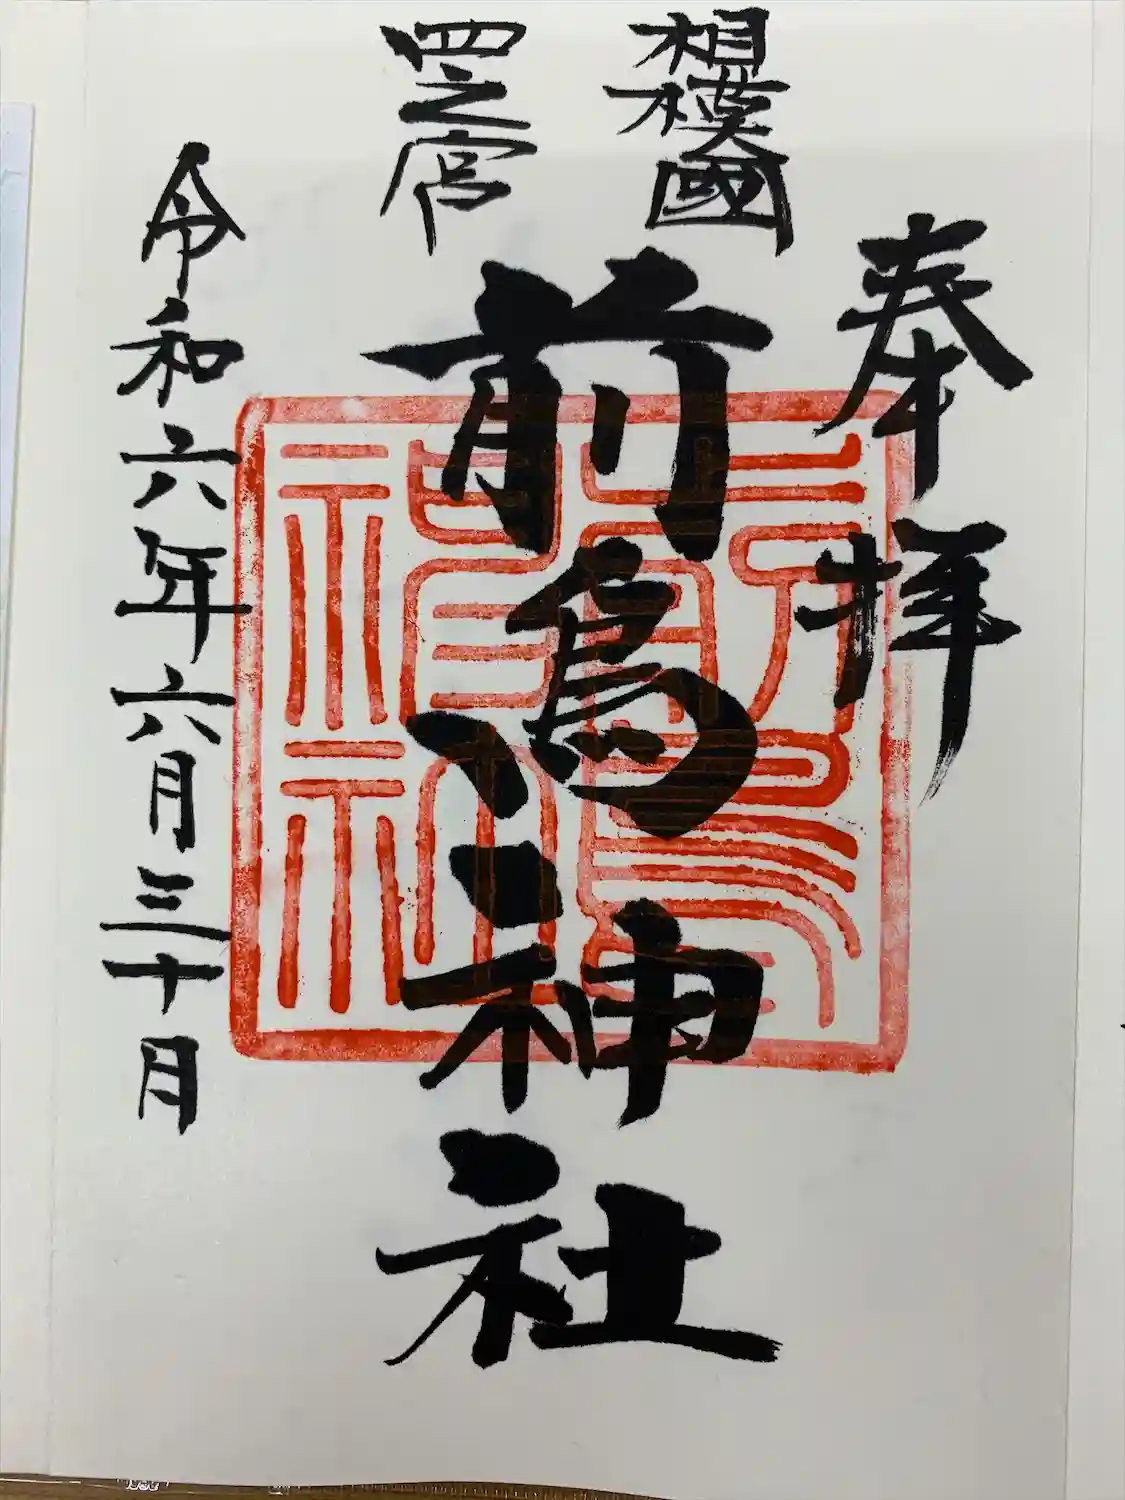 奉拝
相模國
四之宮
前鳥神社
令和六年六月三十日
前鳥神社